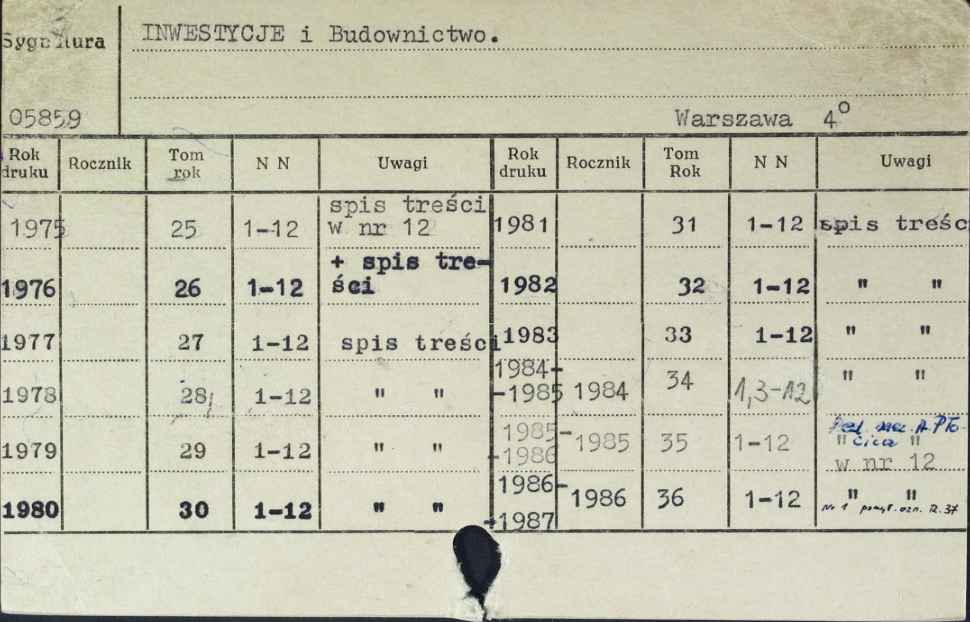 Sygnatura
INWESTYCJE i Budownictwo.
05859
Warszawa 4°
Rok druku Rocznik Tom rok N N Uwagi Rok druku Rocznik Tom Rok N N Uwagi
1975 25 1-12 spis treści w nr 12 1981 31 1-12 spis treśc
1976 26 1-12 + spis tre-ści 1982 32 1-12 " "
1977 27 1-12 spis treści 1983 33 1-12 " "
1978 28 1-12 " " 1984-1985 1984 34 1,3-12 " "
1979 29 1-12 " " 1985-1986 1985 35 1-12 " " w nr 12
1980 30 1-12 " " 1986-1987 1986 36 1-12 " "
Nr 1 R. 37